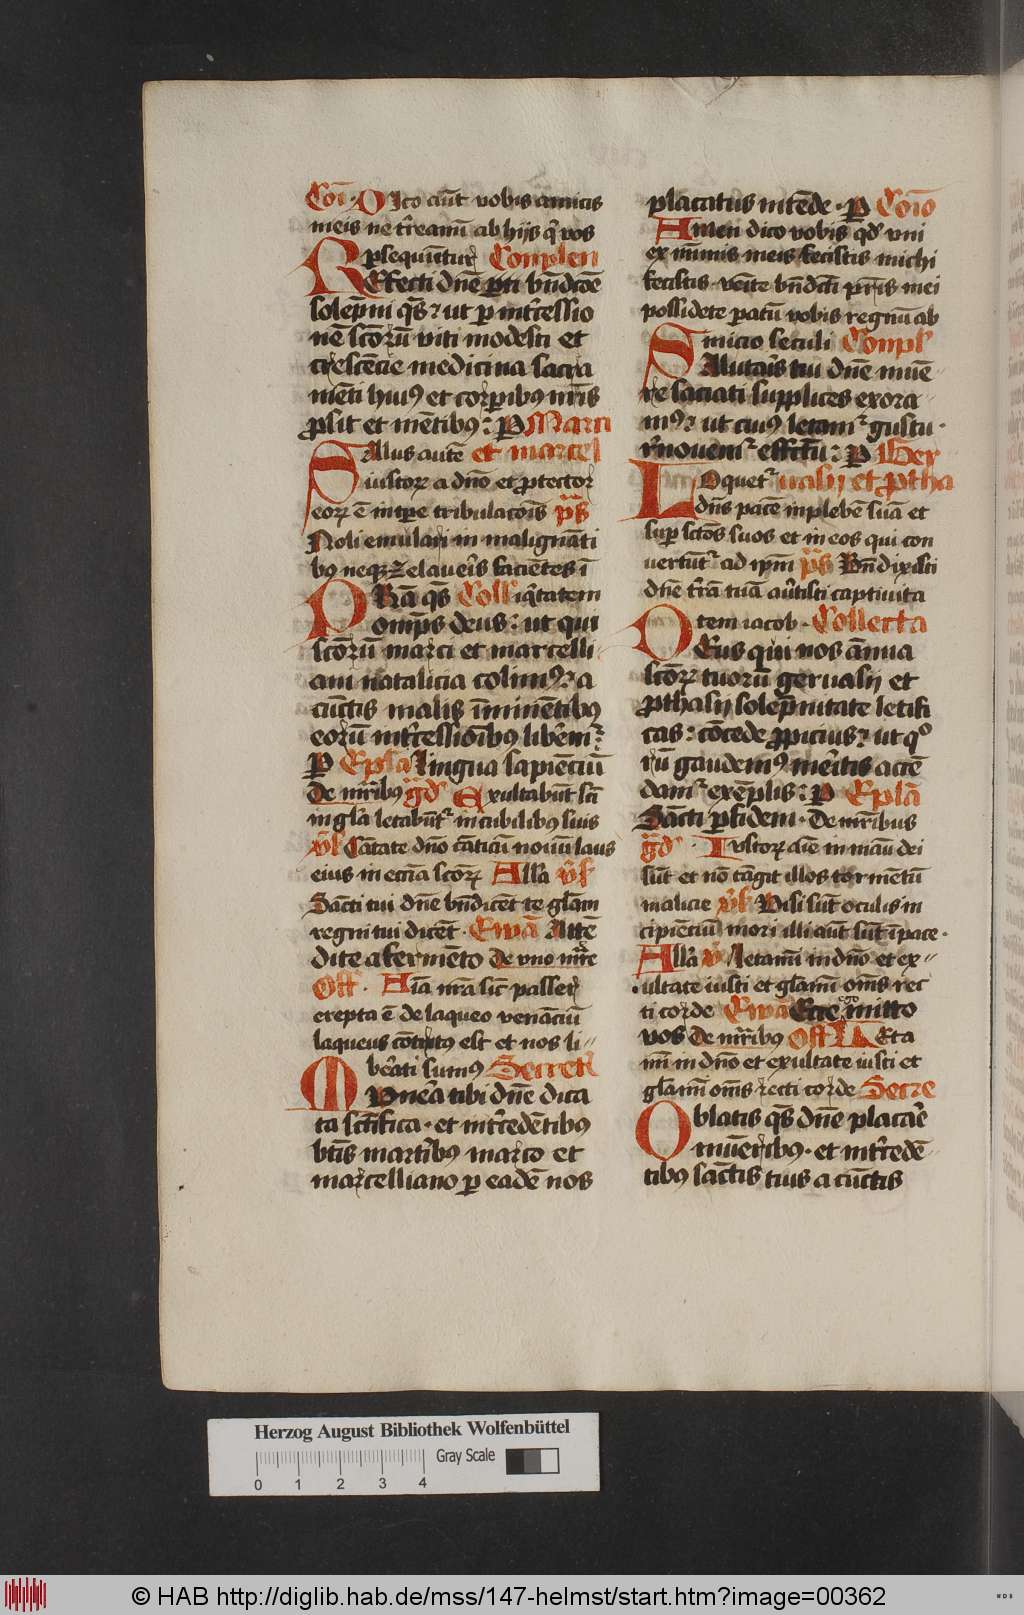 Coī · Dico aūt vobis amicis
meis ne t̄reamī ab hijs q̄ vos
ꝑsequūtur Conplen
Refecti dn̄e ꝑti bn̄dcōe
solep̄ni qs̄ꝫ ut ꝑ intc̄essio
nē scōrū viti modesti et
crescēcie medicina sacra
mēti huiꝰ et corꝑibꝰ nr̄is
ꝓsit et mētibꝰ : P Marci
Salus autē et marcel
iustorꝝ a dn̄o et ꝓtector
eorꝝ ē in tꝑe tribulacōis ps̄
Noli emulari in malignāti
bꝰ neqꝫ zelaueis̄ faciētes ī
PRāa qs̄ Coll iq̄tatem
omp̄s deus : ut qui
scōrū marci et marcelli
ani natalicia colimꝰ : a
cūctis malis īminētibꝰ
eorū intc̄essioībꝰ libēmr̄
P Epl̄a Lingua sapiēciū
De mr̄ibꝰ gd̄ Exultabūt sc̄i
in gl̄a letabūtr̄ in cubilibꝰ suis
v̄s Cātate dn̄o cāticū nouū laus
eius in ecc̄ia scōrꝝ All̄a v̄s
Sancti tui dn̄e bn̄dicēt te gl̄am
regni tui dicēt · Ewā Attē
dite a fermēto De vno mr̄e
Off · Aīa nr̄a sic̄ passer
erepta ē de laqueo venāciū
laqueus cōtritꝰ est et nos li-
beāti sumꝰ Secret
Munēa tibi dn̄e dica
ta sc̄ifica · et intc̄edētibꝰ
bt̄is martībꝰ marco et
marcelliano ꝑ eadē nos
placatus intēde · P Com̄o
Amen dico vobis qd̄ vni
ex mīmis meis fecistis michi
fecistis · vēite bn̄dcti pr̄is mei
possidete paratū vobis regnū ab
inicio seculi Conpl
Salutaīs tui dn̄e mūe
re saciati supplices exora
mꝰ : ut cuiꝰ letamr̄ gustu ·
r̄nouemr̄ effc̄tu : P Ger
Loquetr̄ uasij et ꝓtha
dn̄s pacē in plebē suā et
suꝑ sctōs suos et in eos qui con
uertūtr̄ ad ip̄m ps̄ Bn̄dixisti
dn̄e t̄rā tuā au̅tisti captiuita
tem iacob · Collecta
Deus qui nos ānua
scōrꝝ tuorū geruasij et
ꝓthasij solep̄nitate letifi
cas : cōcede ꝓpicius : ut qͦ
rū gaudemꝰ mēitis accē
damr̄ exēplis : P Epl̄a
Sācti ꝑ fidem · De mr̄ibus
gd̄ · Iustorꝝ aīe in manū dei
sūt et nō tāgit illos tormētū
malicie v̄s Visi sūt oculis in
cipiēciū mori illi aūt sūt ī pace ·
All̄a v̄ Letamī in dn̄o et ex-
ultate iusti et gl̄amī om̄s rec
ti corde Ewā Ecce ego mitto
vos De mr̄ibus Off Leta
mī in dn̄o et exultate iusti et
gl̄amī om̄s recti corde Secre
Oblatis qs̄ dn̄e placae̅
mūeribꝰ · et intc̄edē
tibꝰ sāctis tuis a cūctis
Herzog August Bibliothek Wolfenbüttel
Gray Scale
0 1 2 3 4
© HAB http://diglib.hab.de/mss/147-helmst/start.htm?image=00362